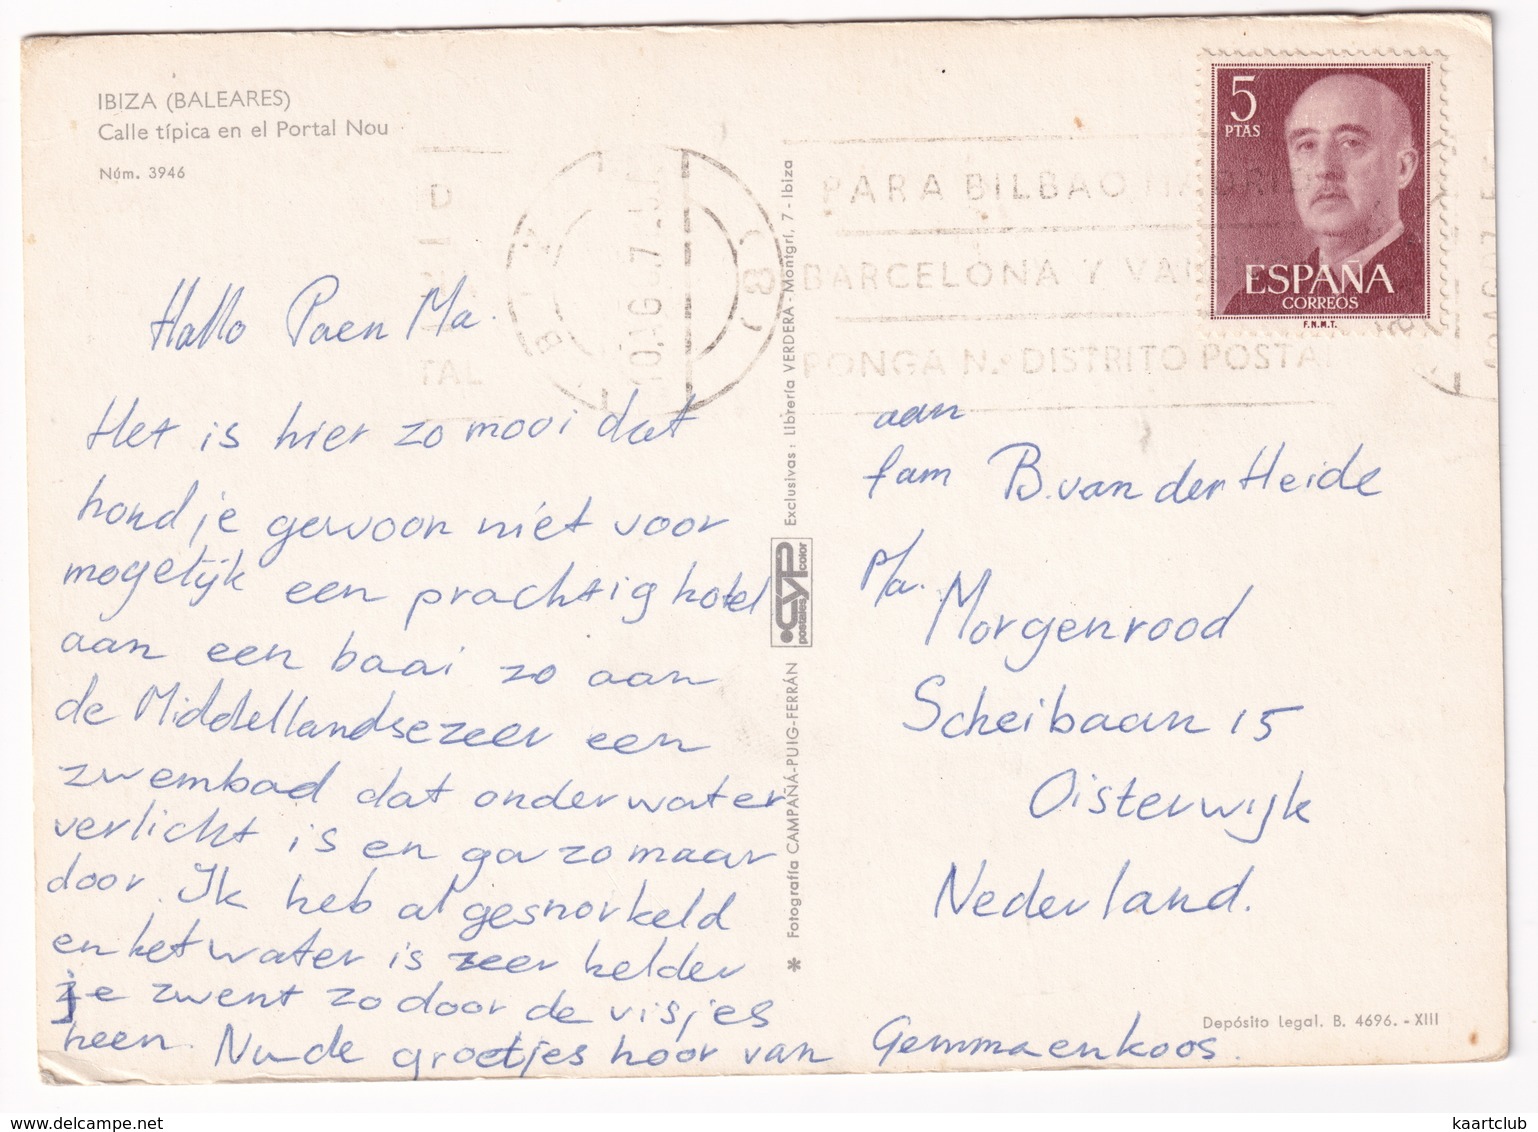 IBIZA (BALEARES)
Calle típica en el Portal Nou
Núm. 3946
Hallo Pa en Ma.
Het is hier zo mooi dat
houd je gewoon niet voor
mogelijk een prachtig hotel
aan een baai zo aan
de Middellandsezeer een
zwembad dat onderwater
verlicht is en ga zo maar
door. Ik heb al gesnorkeld
en het water is zeer helder
je zwemt zo door de visjes
heen. Nu de groetjes hoor van Gemma en koos.
Exclusivas: Librería VERDERA - Montgrí, 7 - Ibiza
postales CYP color
* Fotografía CAMPAÑÁ-PUIG-FERRÁN
5
PTAS
ESPAÑA
CORREOS
F.N.M.T.
PARA BILBAO MADRID
BARCELONA Y
PONGA N.º DISTRITO POSTAL
D
TAL
aan
fam B. van der Heide
p/a. Morgenrood
Scheibaan 15
Oisterwijk
Nederland.
Depósito Legal. B. 4696. - XIII
www.delcampe.net
kaartclub